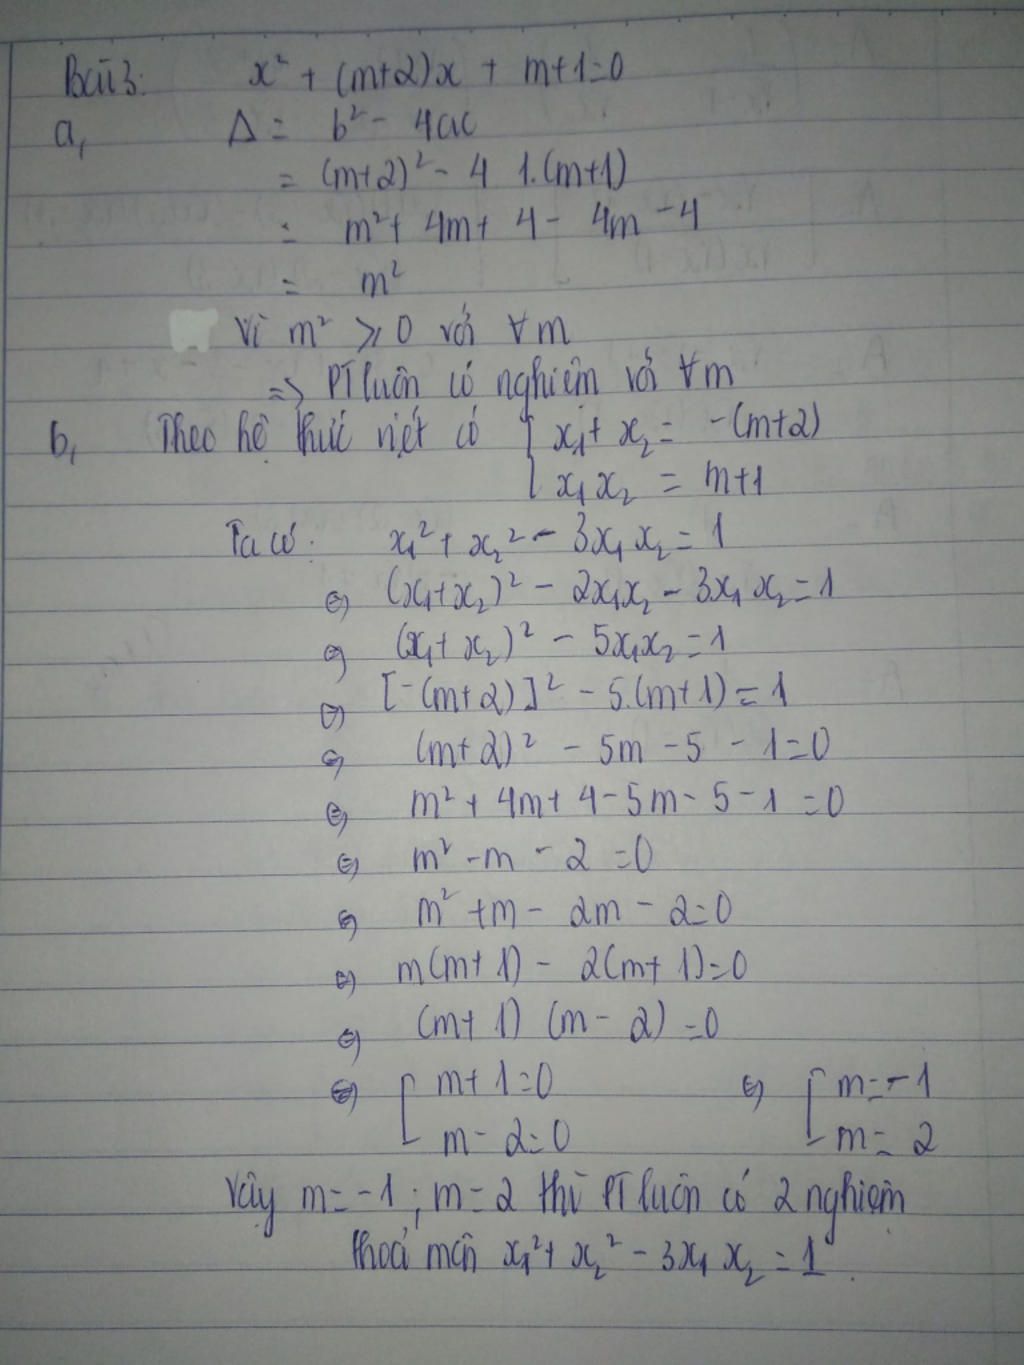 Bài 3: x² + (m+2)x + m+1=0
a, Δ = b² - 4ac
= (m+2)² - 4 1.(m+1)
= m² + 4m + 4 - 4m - 4
= m²
Vì m² ⩾ 0 với ∀m
=> PT luôn có nghiệm với ∀m
b, Theo hệ thức viét có { x₁ + x₂ = -(m+2)
x₁x₂ = m+1
Ta có: x₁² + x₂² - 3x₁x₂ = 1
⇔ (x₁+x₂)² - 2x₁x₂ - 3x₁x₂ = 1
⇔ (x₁+x₂)² - 5x₁x₂ = 1
⇔ [-(m+2)]² - 5.(m+1) = 1
⇔ (m+2)² - 5m - 5 - 1 = 0
⇔ m² + 4m + 4 - 5m - 5 - 1 = 0
⇔ m² - m - 2 = 0
⇔ m² + m - 2m - 2 = 0
⇔ m(m+1) - 2(m+1) = 0
⇔ (m+1) (m-2) = 0
⇔ [ m+1=0 ⇔ [ m=-1
m-2=0 m= 2
Vậy m=-1; m=2 thì PT luôn có 2 nghiệm
thoả mãn x₁² + x₂² - 3x₁x₂ = 1.